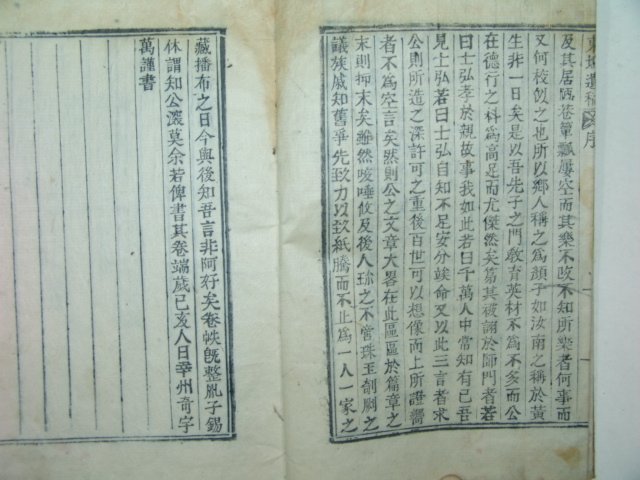 及其居陋巷簞瓢屢空而其樂不改不知所樂者何事而
又何校飢之也所以鄉人稱之爲顔子如汝南之稱於黃
生非一日矣是以吾先子之門敎育英材不爲不多而公
在德行之科爲高足而尤傑然矣第其被詡於師門者若
曰士弘孝於親故事我如此若曰千萬人中當知有已吾
見士弘若曰士弘自知不足安分竢命又以此三言者求
公則所造之深許可之重後百世可以想像而上所證嚮
者不爲空言矣然則公之文章大畧在此區區於篇章之
末則抑末矣雖然咳唾攸及後人珎之不啻珠玉剞劂之
議族戚知舊爭先致力以致紙騰而不止爲一人一家之
藏播布之日今與後知吾言非阿好矣卷帙旣整胤子錫
休謂知公深莫余若俾書其卷端歲己亥人日幸州奇宇
萬謹書